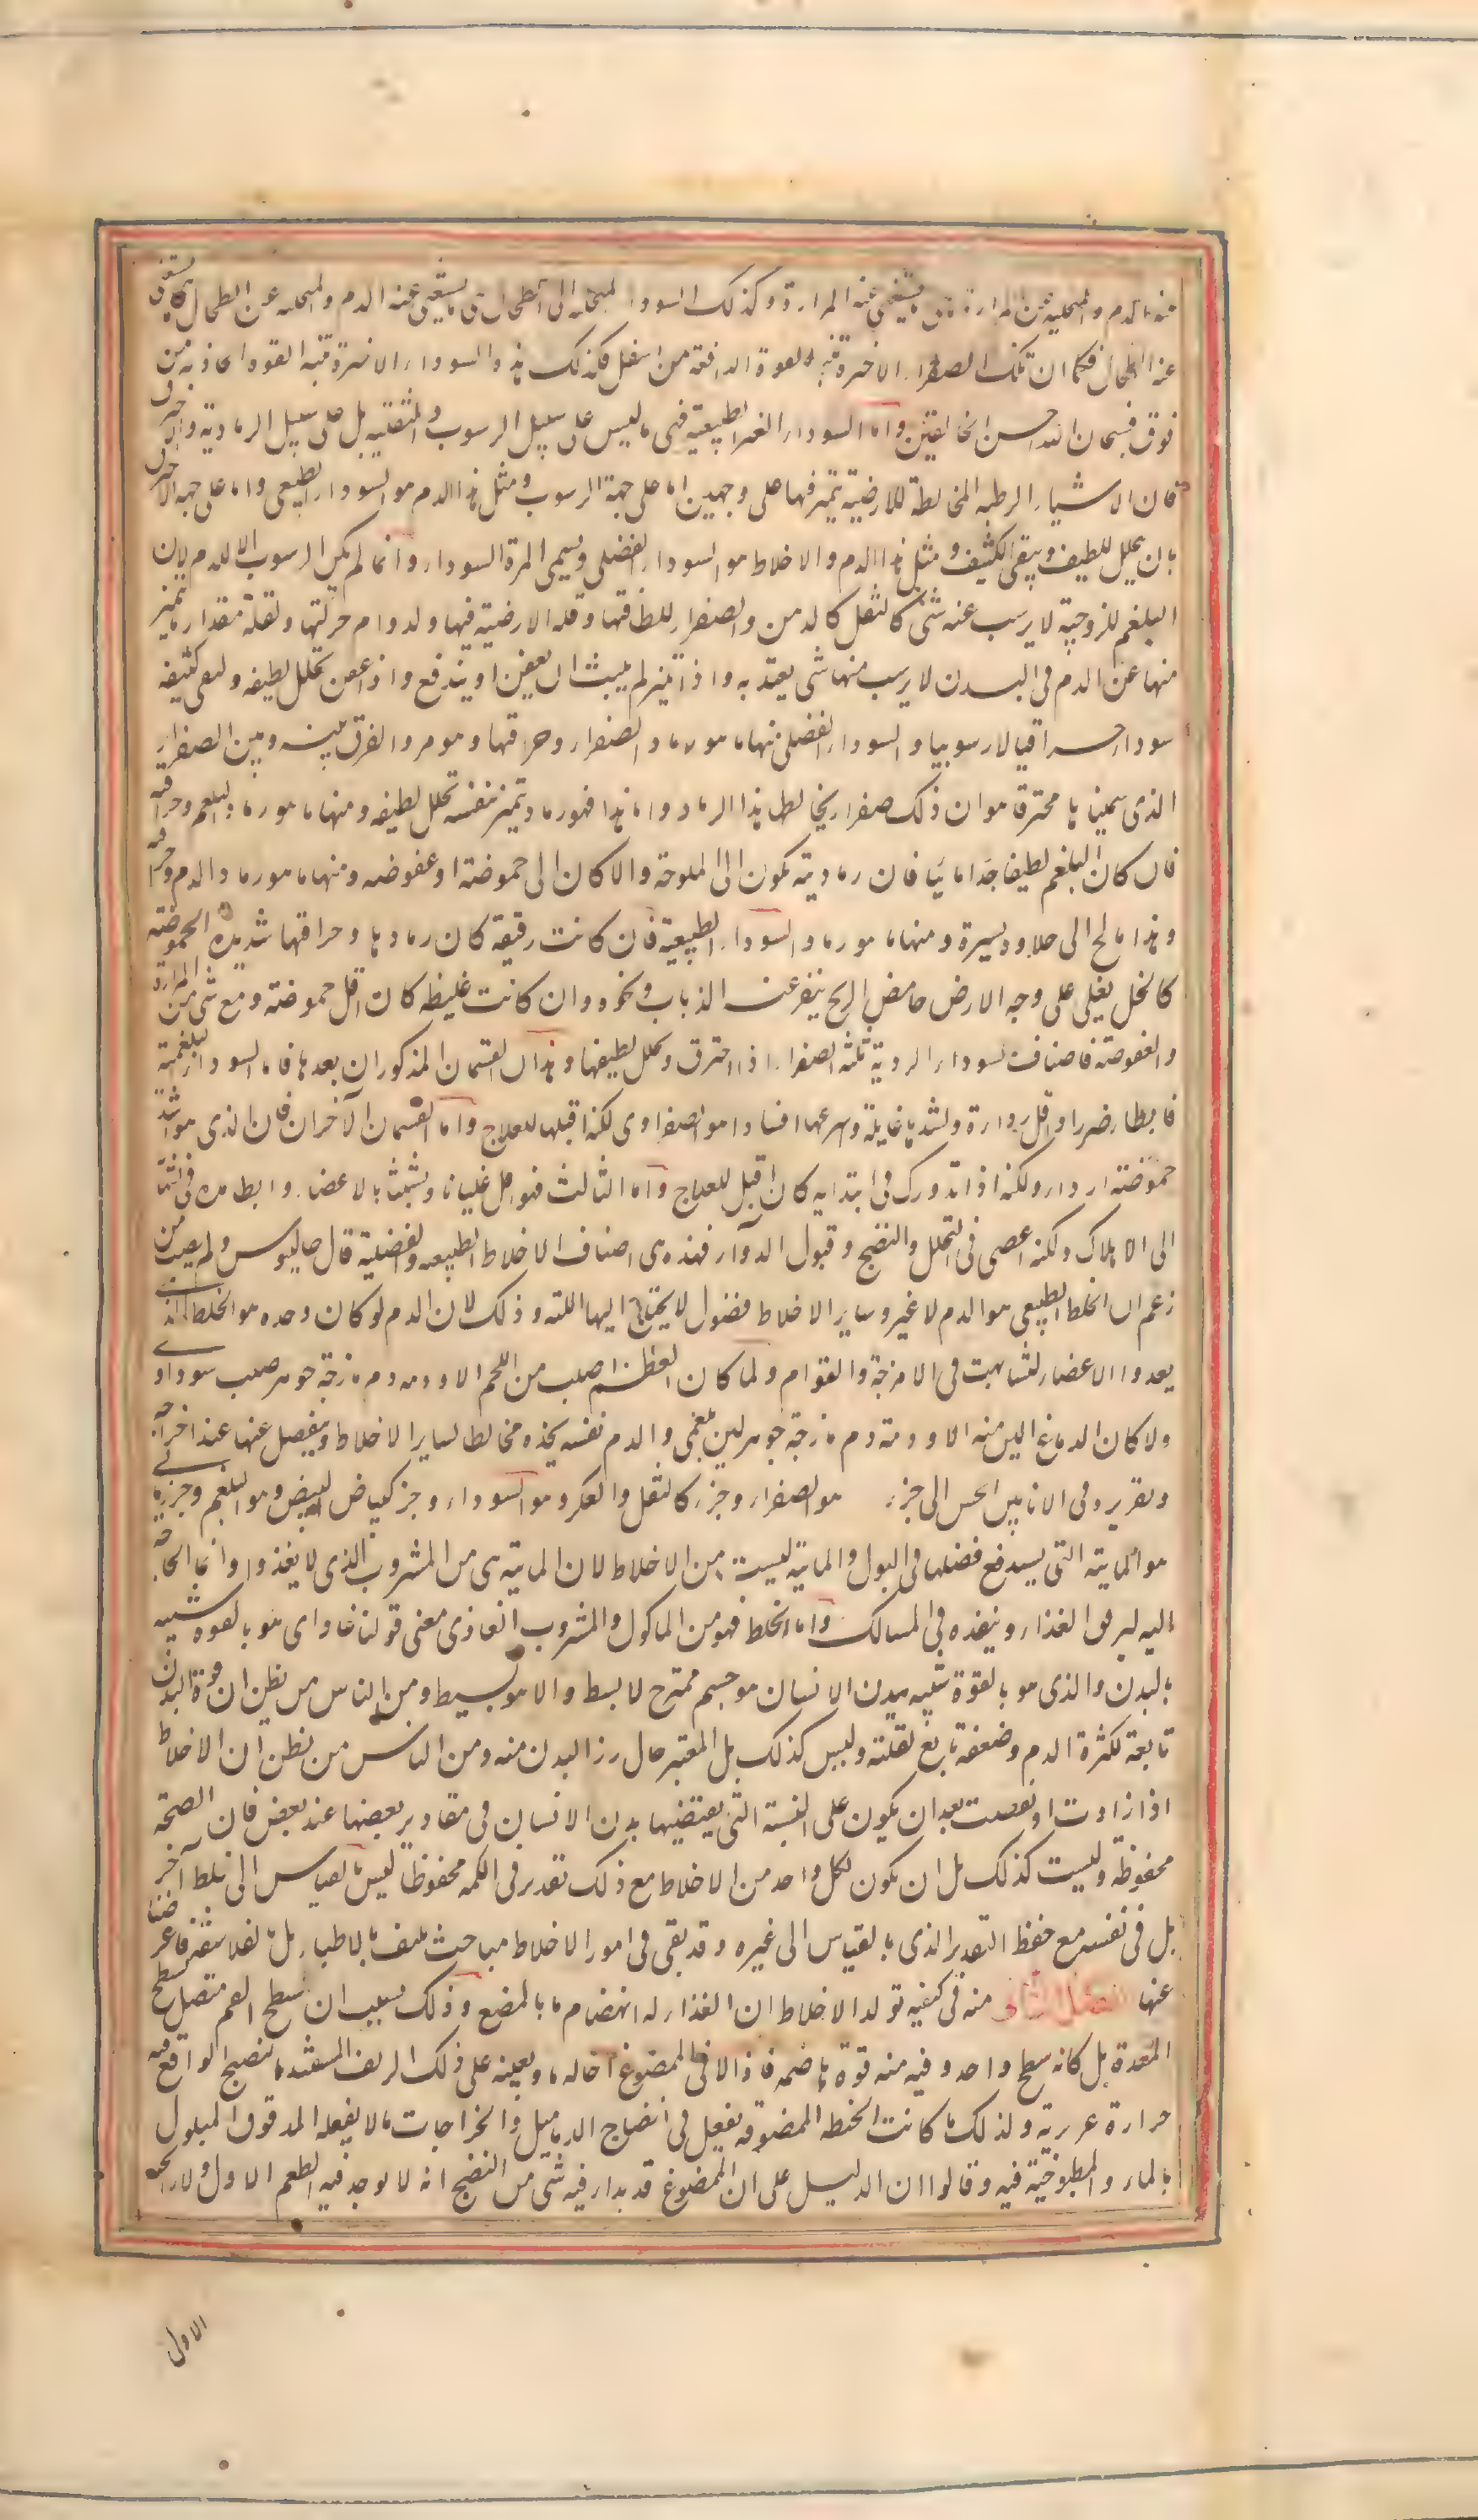 منه الدم والمتحلبة عن المرارة تستغنى عنه المرارة وكذلك السوداء المتحلبة الى الطحال يستغنى عنه الدم والمتحلبة عن الطحال يستغنى
عنه الطحال فكما ان تلك الصفراء الاخيرة تنبه القوة الدافعة من اسفل فكذلك هذه السوداء الاخيرة تنبه القوة الجاذبة من
فوق فسبحان الله احسن الخالقين واما السوداء الغير الطبيعية فهى ما ليس على سبيل الرسوب والثفلية بل على سبيل الرمادية والاحتراق
فان الاشياء الرطبة المخالطة للارضية تتميز فيها على وجهين اما على جهة الرسوب ومثل هذا الدم هو السوداء الطبيعى واما على جهة الاحتراق
بان يتحلل اللطيف ويبقى الكثيف ومثل هذا الدم والاخلاط هو السوداء الفضلى ويسمى المرة السوداء وانما لم يكن الرسوب الا للدم لان
البلغم للزوجته لا يرسب عنه شئ كالثفل كالدهن والصفراء للطافتها وقلة الارضية فيها ولدوام حركتها ولقلة مقدار ما يتميز
منها عن الدم فى البدن لا يرسب منها شئ يعتد به واذا تميز لم يلبث ان يعفن او يندفع واذا عفن تحلل لطيفه وبقى كثيفه
سوداء احتراقيا لا رسوبيا والسوداء الفضلى منها ما هو رماد الصفراء وحراقتها وهو مر والفرق بينه وبين الصفراء
الذى سميناها محترقا هو ان ذلك صفراء يخالطها هذا الرماد واما هذا فهو رماد تميز بنفسه تحلل لطيفه ومنها ما هو رماد البلغم وحراقته
فان كان البلغم لطيفا جدا مائيا فان رماديته تكون الى الملوحة والا كان الى حموضة او عفوصه ومنها ما هو رماد الدم وحراقته
وهذا مالح الى حلاوة يسيرة ومنها ما هو رماد السوداء الطبيعية فان كانت رقيقة كان رمادها وحراقتها شديدة الحموضة
كالخل يغلى على وجه الارض حامض الريح ينفر عنه الذباب ونحوه وان كانت غليظة كان اقل حموضة ومع شئ من المرارة
والعفوصة فاصناف السوداء الردية ثلثه الصفراء اذا احترق وتحلل لطيفها وهذان القسمان المذكوران بعدها فاما السوداء البلغمية
فابطا ضررا واقل رداءة واشدها غايلة واسرعها افسادا هو الصفراوى لكنها اقبلها للعلاج واما القسمان الآخران فان الذى هو اشد
حموضة اردا ولكنه اذا تدورك فى ابتدايه كان اقبل للعلاج واما الثالث فهو اقل غليانا وتشبثا بالاعضاء وابطا مدة فى انتها
الى الاهلاك ولكنه اعصى فى التحلل والنضج وقبول الدواء فهذه هى اصناف الاخلاط الطبيعية والفضلية قال جالينوس ولم يصب من
زعم ان الخلط الطبيعى هو الدم لا غير وساير الاخلاط فضول لا يحتاج اليها البتة وذلك لان الدم لو كان وحده هو الخلط الذى
يغدوا الاعضاء لتشابهت فى الامزجة والقوام ولما كان العظم اصلب من اللحم الا ودمه دم مازجه جوهر صلب سوداوى
ولا كان الدماغ الين منه الا ودمه دم مازجه جوهر لين بلغمى والدم نفسه تجده مخالطا لساير الاخلاط وينفصل عنها عند اخراجه
وتقريره فى الانا بين الحس الى جزء هو الصفراء وجزء كالثفل والعكر وهو السوداء وجزء كبياض البيض وهو البلغم وجزء مائى
هو المائية التى يندفع فضلها فى البول والمائية ليست من الاخلاط لان المائية هى من المشروب الذى لا يغذو وانما الحاجة
اليه ليرقق الغذاء وينفذه فى المسالك واما الخلط فهو من الماكول والمشروب الغاذى ومعنى قولنا غاذ اى هو بالقوة شبيه
بالبدن والذى هو بالقوة شبيه ببدن الانسان هو جسم ممتزج لا بسيط والماء هو بسيط ومن الناس من يظن ان قوة البدن
تابعة لكثرة الدم وضعفه تابع لقلته وليس كذلك بل المعتبر حال رزء البدن منه ومن الناس من يظن ان الاخلاط
اذا زادت او نقصت بعد ان يكون على النسبة التى يقتضيها بدن الانسان فى مقادير بعضها عند بعض فان الصحة
محفوظة وليست كذلك بل ان تكون لكل واحد من الاخلاط مع ذلك تقدير فى الكم محفوظا ليس بالقياس الى خلط آخر
بل فى نفسه مع حفظ التقدير الذى بالقياس الى غيره وقد بقى فى امور الاخلاط مباحث ليست بالاطباء بل بالفلاسفة فاعرضنا
عنها الفصل الثانى منه فى كيفية تولد الاخلاط ان الغذاء له انهضام ما بالمضغ وذلك بسبب ان سطح الفم متصل بسطح
المعدة بل كانه سطح واحد وفيه منه قوة هاضمه فاذا لاقى الممضوغ احاله ما ويعينه على ذلك الريق المستفيد بالنضج الواقع فيه
حرارة غريزية ولذلك ما كانت الحنطة الممضوغة تفعل فى انضاج الدماميل والخراجات ما لا يفعله المدقوق المبلول
بالماء والمطبوخة فيه وقالوا ان الدليل على ان الممضوغ قد بدا فيه شئ من النضج انه لا يوجد فيه الطعم الاول ولا رايحته
الاولى